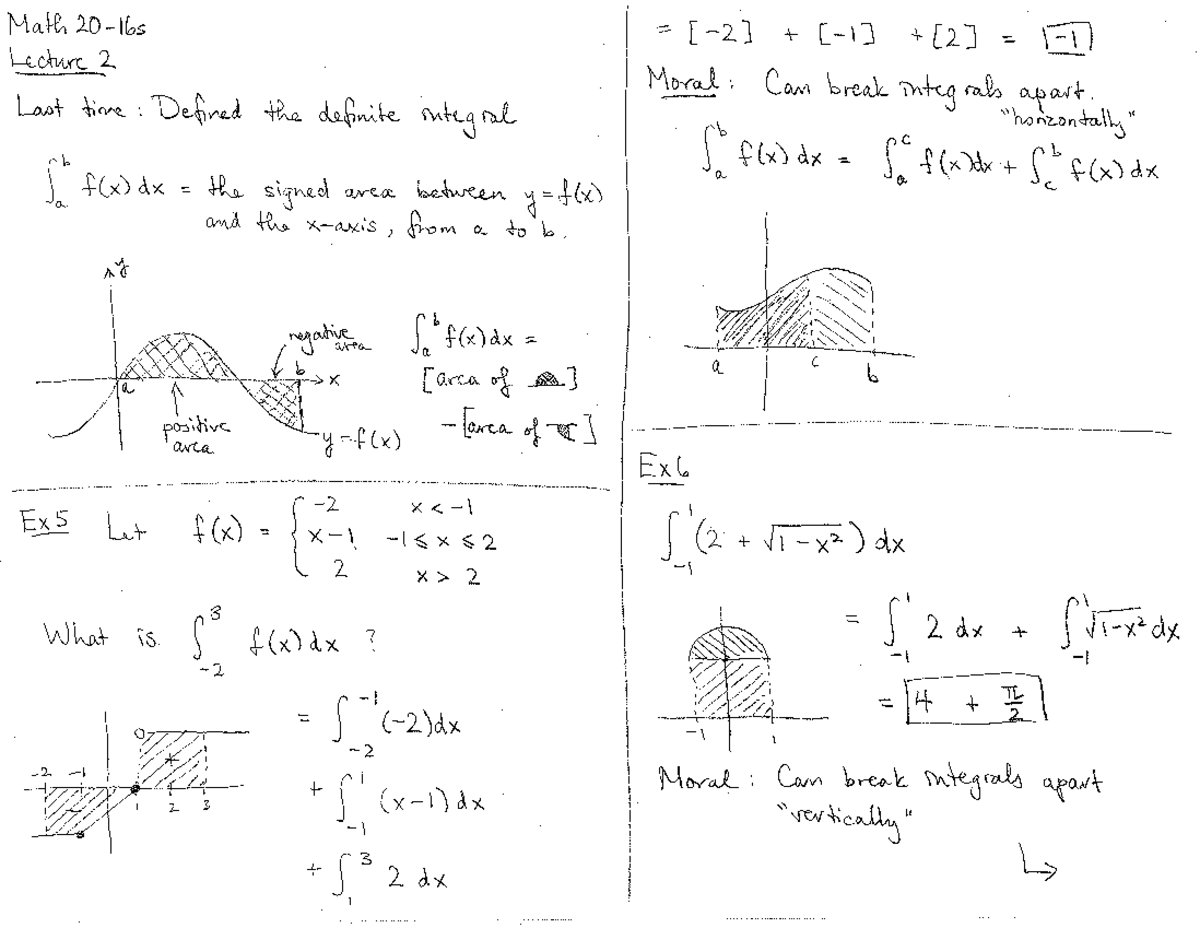 Math 20-16s
Lecture 2
Last time: Defined the definite integral
∫_a^b f(x) dx = the signed area between y=f(x)
and the x-axis, from a to b.
y
negative area
a
b
x
positive area
y=f(x)
∫_a^b f(x) dx =
[area of ]
-[area of ]
Ex 5 Let f(x) = { -2 x < -1
x-1 -1 ≤ x ≤ 2
2 x > 2
What is ∫_{-2}^3 f(x) dx ?
= ∫_{-2}^{-1} (-2) dx
-2 -1 1 2 3
+
-
+ ∫_{-1}^1 (x-1) dx
+ ∫_1^3 2 dx
= [-2] + [-1] + [2] = -1
Moral: Can break integrals apart.
"horizontally"
∫_a^b f(x) dx = ∫_a^c f(x) dx + ∫_c^b f(x) dx
a c b
Ex 6
∫_{-1}^1 (2 + √(1-x²)) dx
= ∫_{-1}^1 2 dx + ∫_{-1}^1 √(1-x²) dx
= 4 + π/2
-1 1
Moral: Can break integrals apart
"vertically"